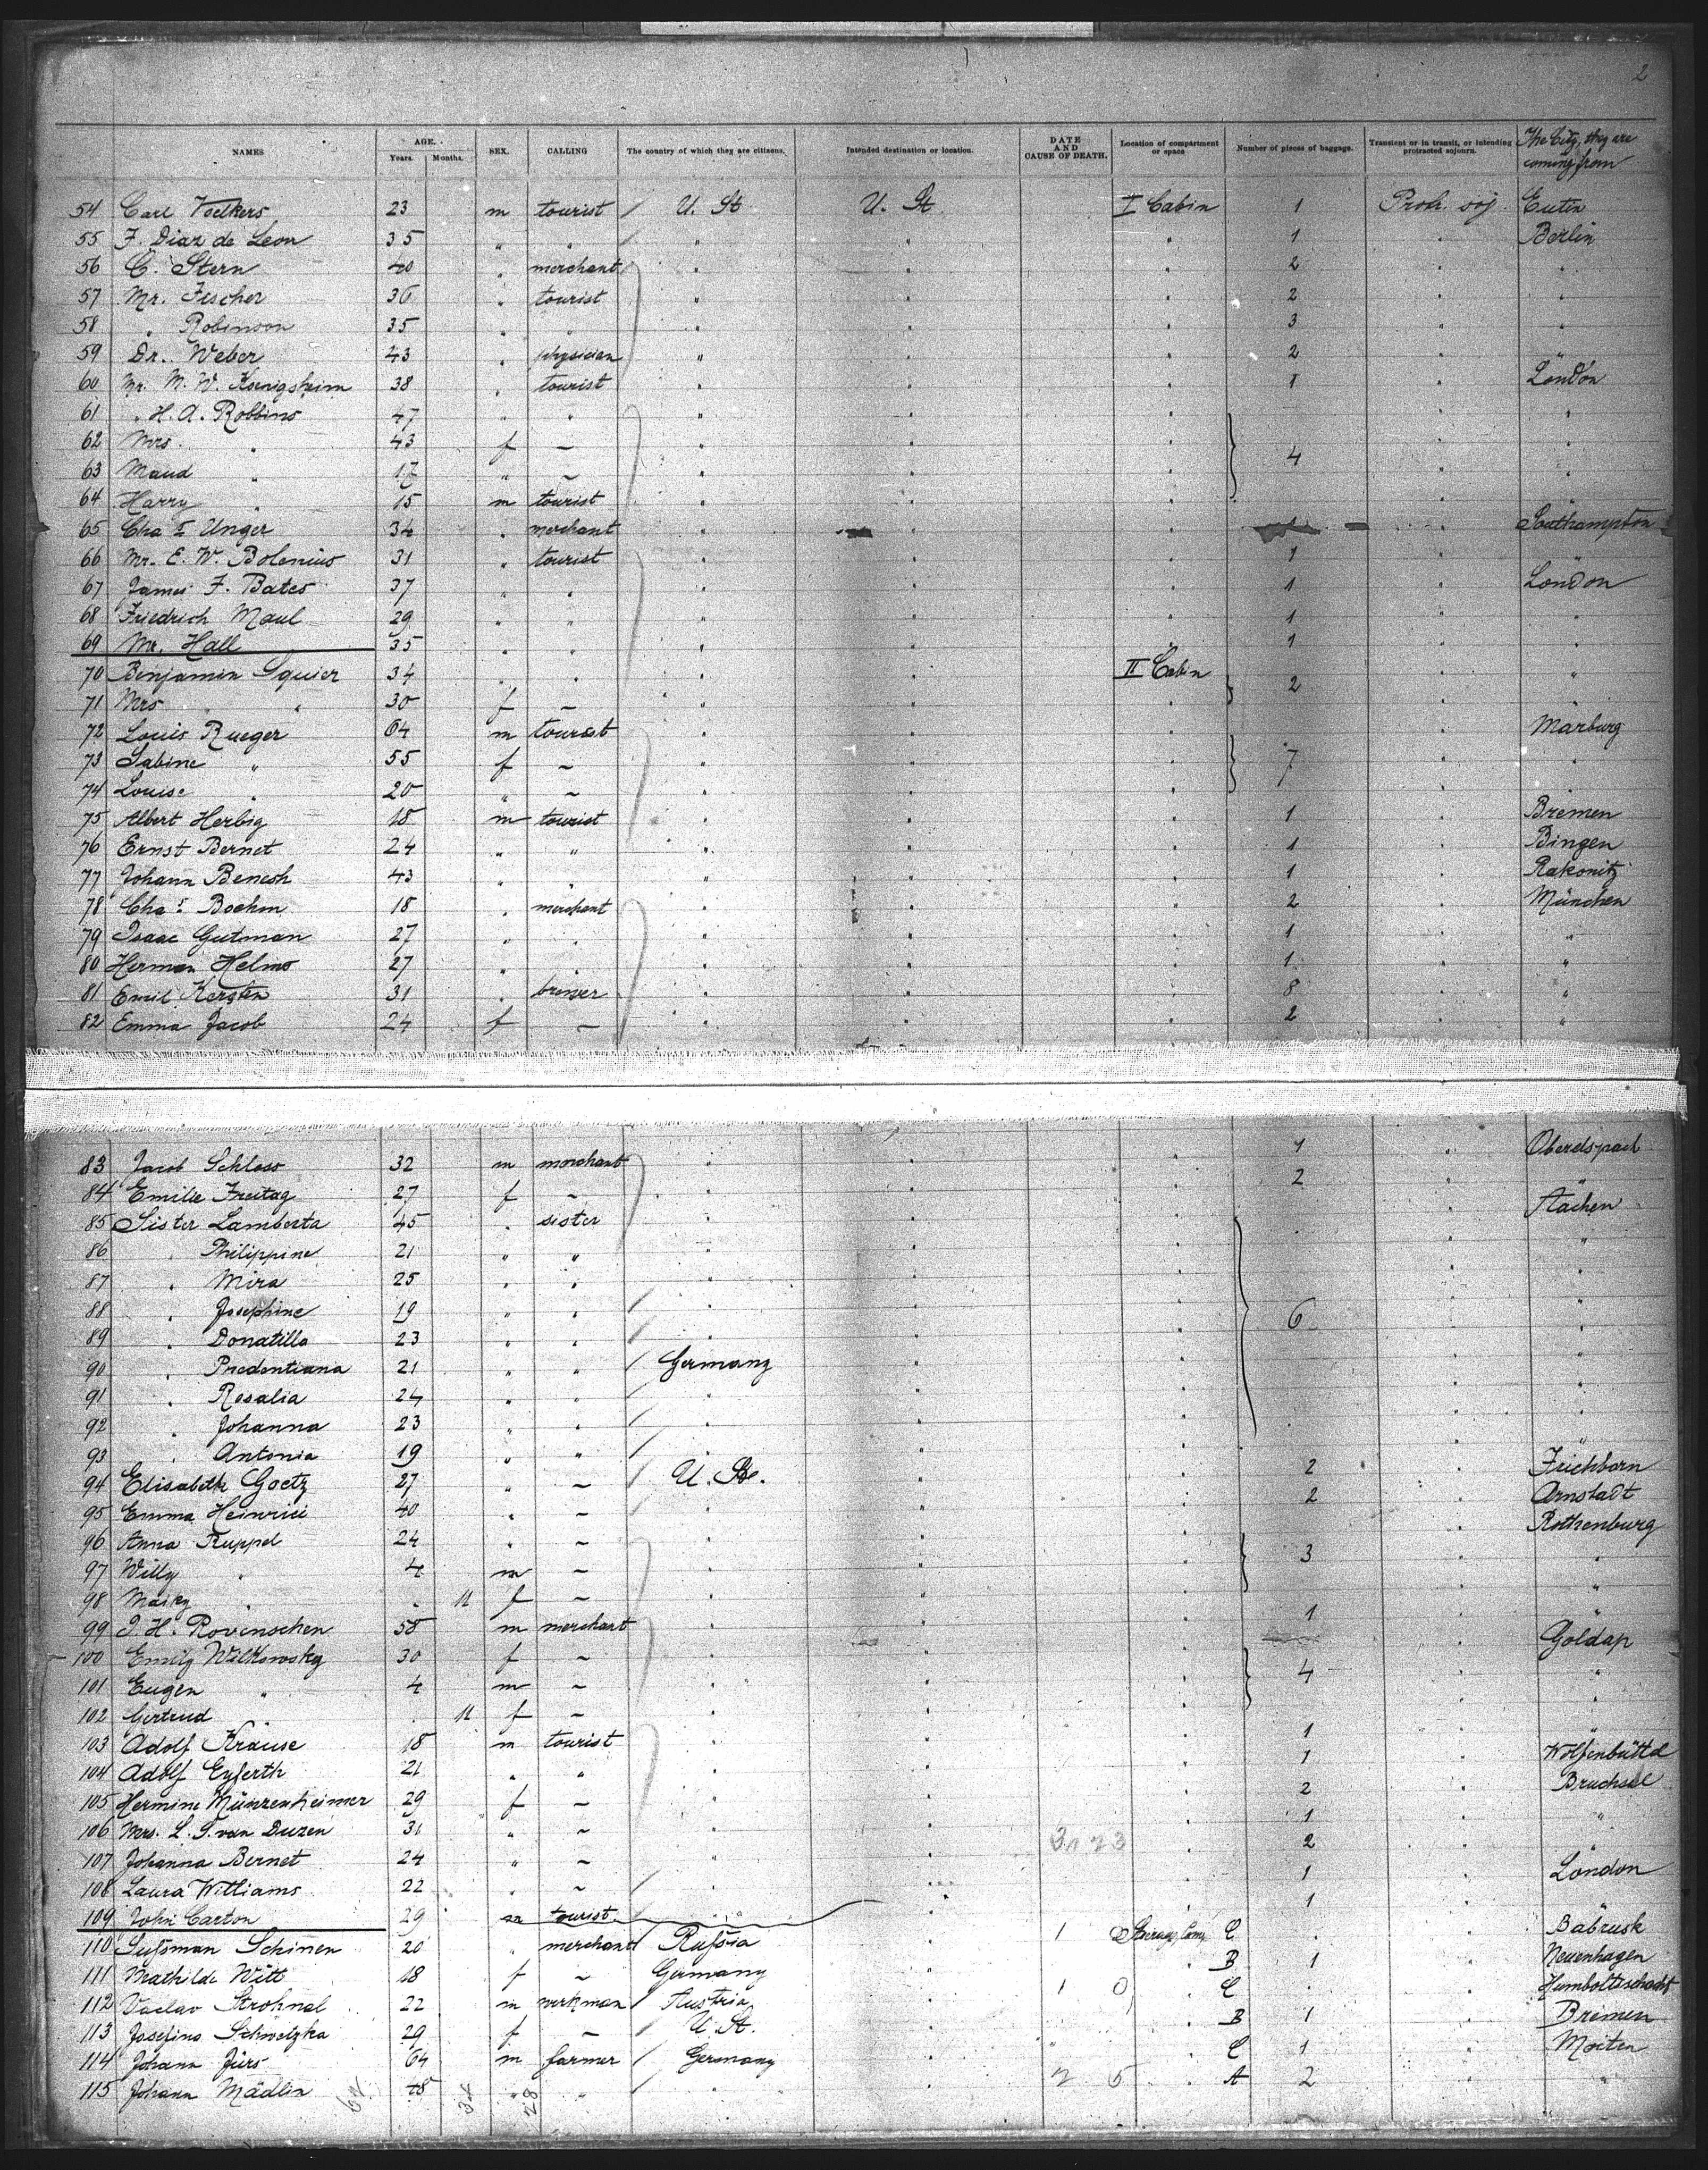 2
NAMES AGE. Years. Months. SEX. CALLING The country of which they are citizens. Intended destination or location. DATE AND CAUSE OF DEATH. Location of compartment or space Number of pieces of baggage. Transient or in transit, or intending protracted sojourn. The City, they are coming from
54 Carl Voelkers 23 m tourist / U. St U. St I Cabin 1 Protr. soj Eutin
55 F. Diaz de Leon 35 " " / " " " 1 " Berlin
56 C. Stern 40 " merchant " " " 2 " "
57 Mr. Fischer 36 " tourist " " " 2 " "
58 " Robinson 35 " " " " " 3 " "
59 Dr. Weber 43 " physician " " " 2 " "
60 Mr. M. W. Koenigsheim 38 " tourist " " " 1 " London
61 " H. A. Robbins 47 " " " " " " "
62 Mrs. " 43 f – " " " 4 " "
63 Maud " 17 " – " " " " "
64 Harry " 15 m tourist " " " " "
65 Chas Unger 34 " merchant " " 1 " Southampton
66 Mr. E. W. Bolenius 31 " tourist " " " 1 " "
67 James F. Bates 37 " " " " " 1 " London
68 Friedrich Maul 29 " " " " " 1 " "
69 Mr. Hall 35 " " " " " 1 " "
70 Benjamin Squier 34 " " " " II Cabin 2 " "
71 Mrs " " 30 f – " " " "
72 Louis Rueger 64 m tourist " " " 7 " Marburg
73 Sabine " 55 f – " " " " "
74 Louise " 20 " – " " " " "
75 Albert Herbig 18 m tourist " " " 1 " Bremen
76 Ernst Bernet 24 " " " " " 1 " Bingen
77 Johann Benesh 43 " " " " " 1 " Rakonitz
78 Chas Boehm 18 " merchant " " " 2 " München
79 Isaac Gutman 27 " " " " " 1 " "
80 Herman Helms 27 " " " " " 1 " "
81 Emil Kersten 31 " brewer " " " 8 " "
82 Emma Jacob 24 f – " " " 2 " "
83 Jacob Schloss 32 m merchant " " " 1 "
84 Emilie Freitag 27 f – " " " 2 " "
85 Sister Lamberta 45 " sister " " " " Aachen
86 " Philippine 21 " " " " " " "
87 " Mira 25 " " " " " " "
88 " Josephine 19 " " / " " " 6 " "
89 " Donatilla 23 " " / " " " " "
90 " Prudentiana 21 " " / Germany " " " "
91 " Rosalia 24 " " / " " " " "
92 " Johanna 23 " " / " " " " "
93 " Antonia 19 " " / " " " " "
94 Elisabeth Goetz 27 " – / U. St. " " 2 "
95 Emma Heinrici 40 " – " " " 2 " Arnstadt
96 Anna Ruppel 24 " – " " " 3 " Rothenburg
97 Willy " 4 m – " " " " "
98 " " 11 f – " " " " "
99 J. H. Rovenschen 58 m merchant " " " 1 " "
100 Emily Wilkowsky 30 f – " " " 4 " Goldap
101 Eugen " 4 m – " " " " "
102 Gertrud " " 11 f – " " " " "
103 Adolf Krause 18 m tourist " " " 1 " "
104 Adolf Eyferth 21 " " " " " 1 " Wolfenbüttel
105 Hermine Münzenheimer 29 f – " " " 2 " Bruchsal
106 Mrs. L. S. van Duzen 31 " – " " " 1 " "
107 Johanna Bernet 24 " – " " " 2 " "
108 Laura Williams 22 " – / " " " 1 " London
109 John Carton 29 m tourist / " " " 1 " "
110 Sussman Schinen 20 " merchant / Russia " 1 0 Steerage Comp. C " " Babrusk
111 Mathilde Witt 18 f – / Germany " " B 1 " Neuenhagen
112 Vaclav Strohnal 22 m workman / Austria " 1 0 " C " " Humboldtschacht
113 Josefine 29 f – / U. St. " " B 1 " Bremen
114 Johann Jürs 64 m farmer / Germany " " C 1 " Moiten
115 Johann Mädlin 48 " " / " " 2 5 " A 2 " "
34 28